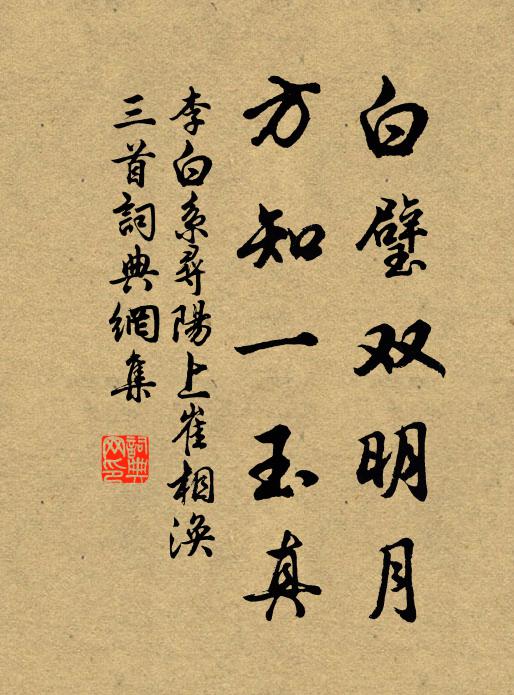 白璧双明月
方知一玉真
李白系尋陽上崔相渙
三首詞典網集
詞典
网印